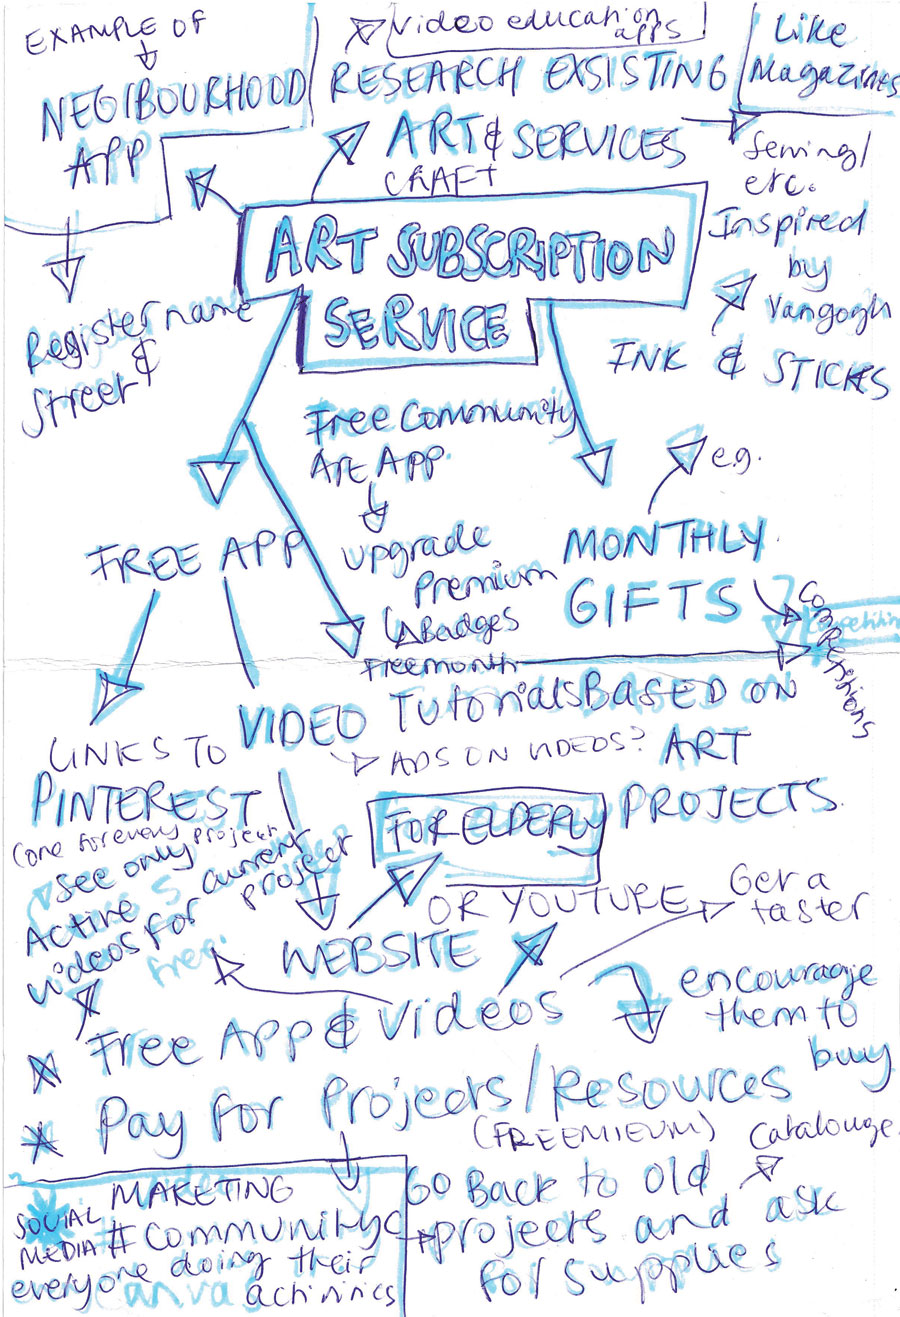 EXAMPLE OF
NEGIBOURHOOD
APP
Register name
&
Street
Video education
apps
RESEARCH EXSISTING
ART & SERVICES
CRAFT
Like
Magazines
Sewing/
etc.
Inspired
by
Vangogh
INK & STICKS
ART SUBSCRIPTION
SERVICE
Free Community
Art App.
upgrade
Premium
Badges
Free month
e.g.
MONTHLY
GIFTS
Competitions
FREE APP
LINKS TO
PINTEREST
(one for every project
See only
Active 5 current
videos for project
free.
VIDEO TutorialsBASED ON
ART
PROJECTS.
ADS ON VIDEOS?
FOR ELDERLY
OR YOUTUBE
Get a
taster
WEBSITE
Free App & Videos
encourage
them to
buy
Pay for Projects/Resources
(FREEMIUM)
Catalouge.
GO Back to old
projects and ask
for supplies
MAKETING
SOCIAL
MEDIA
#communityc
everyone doing their
canvas